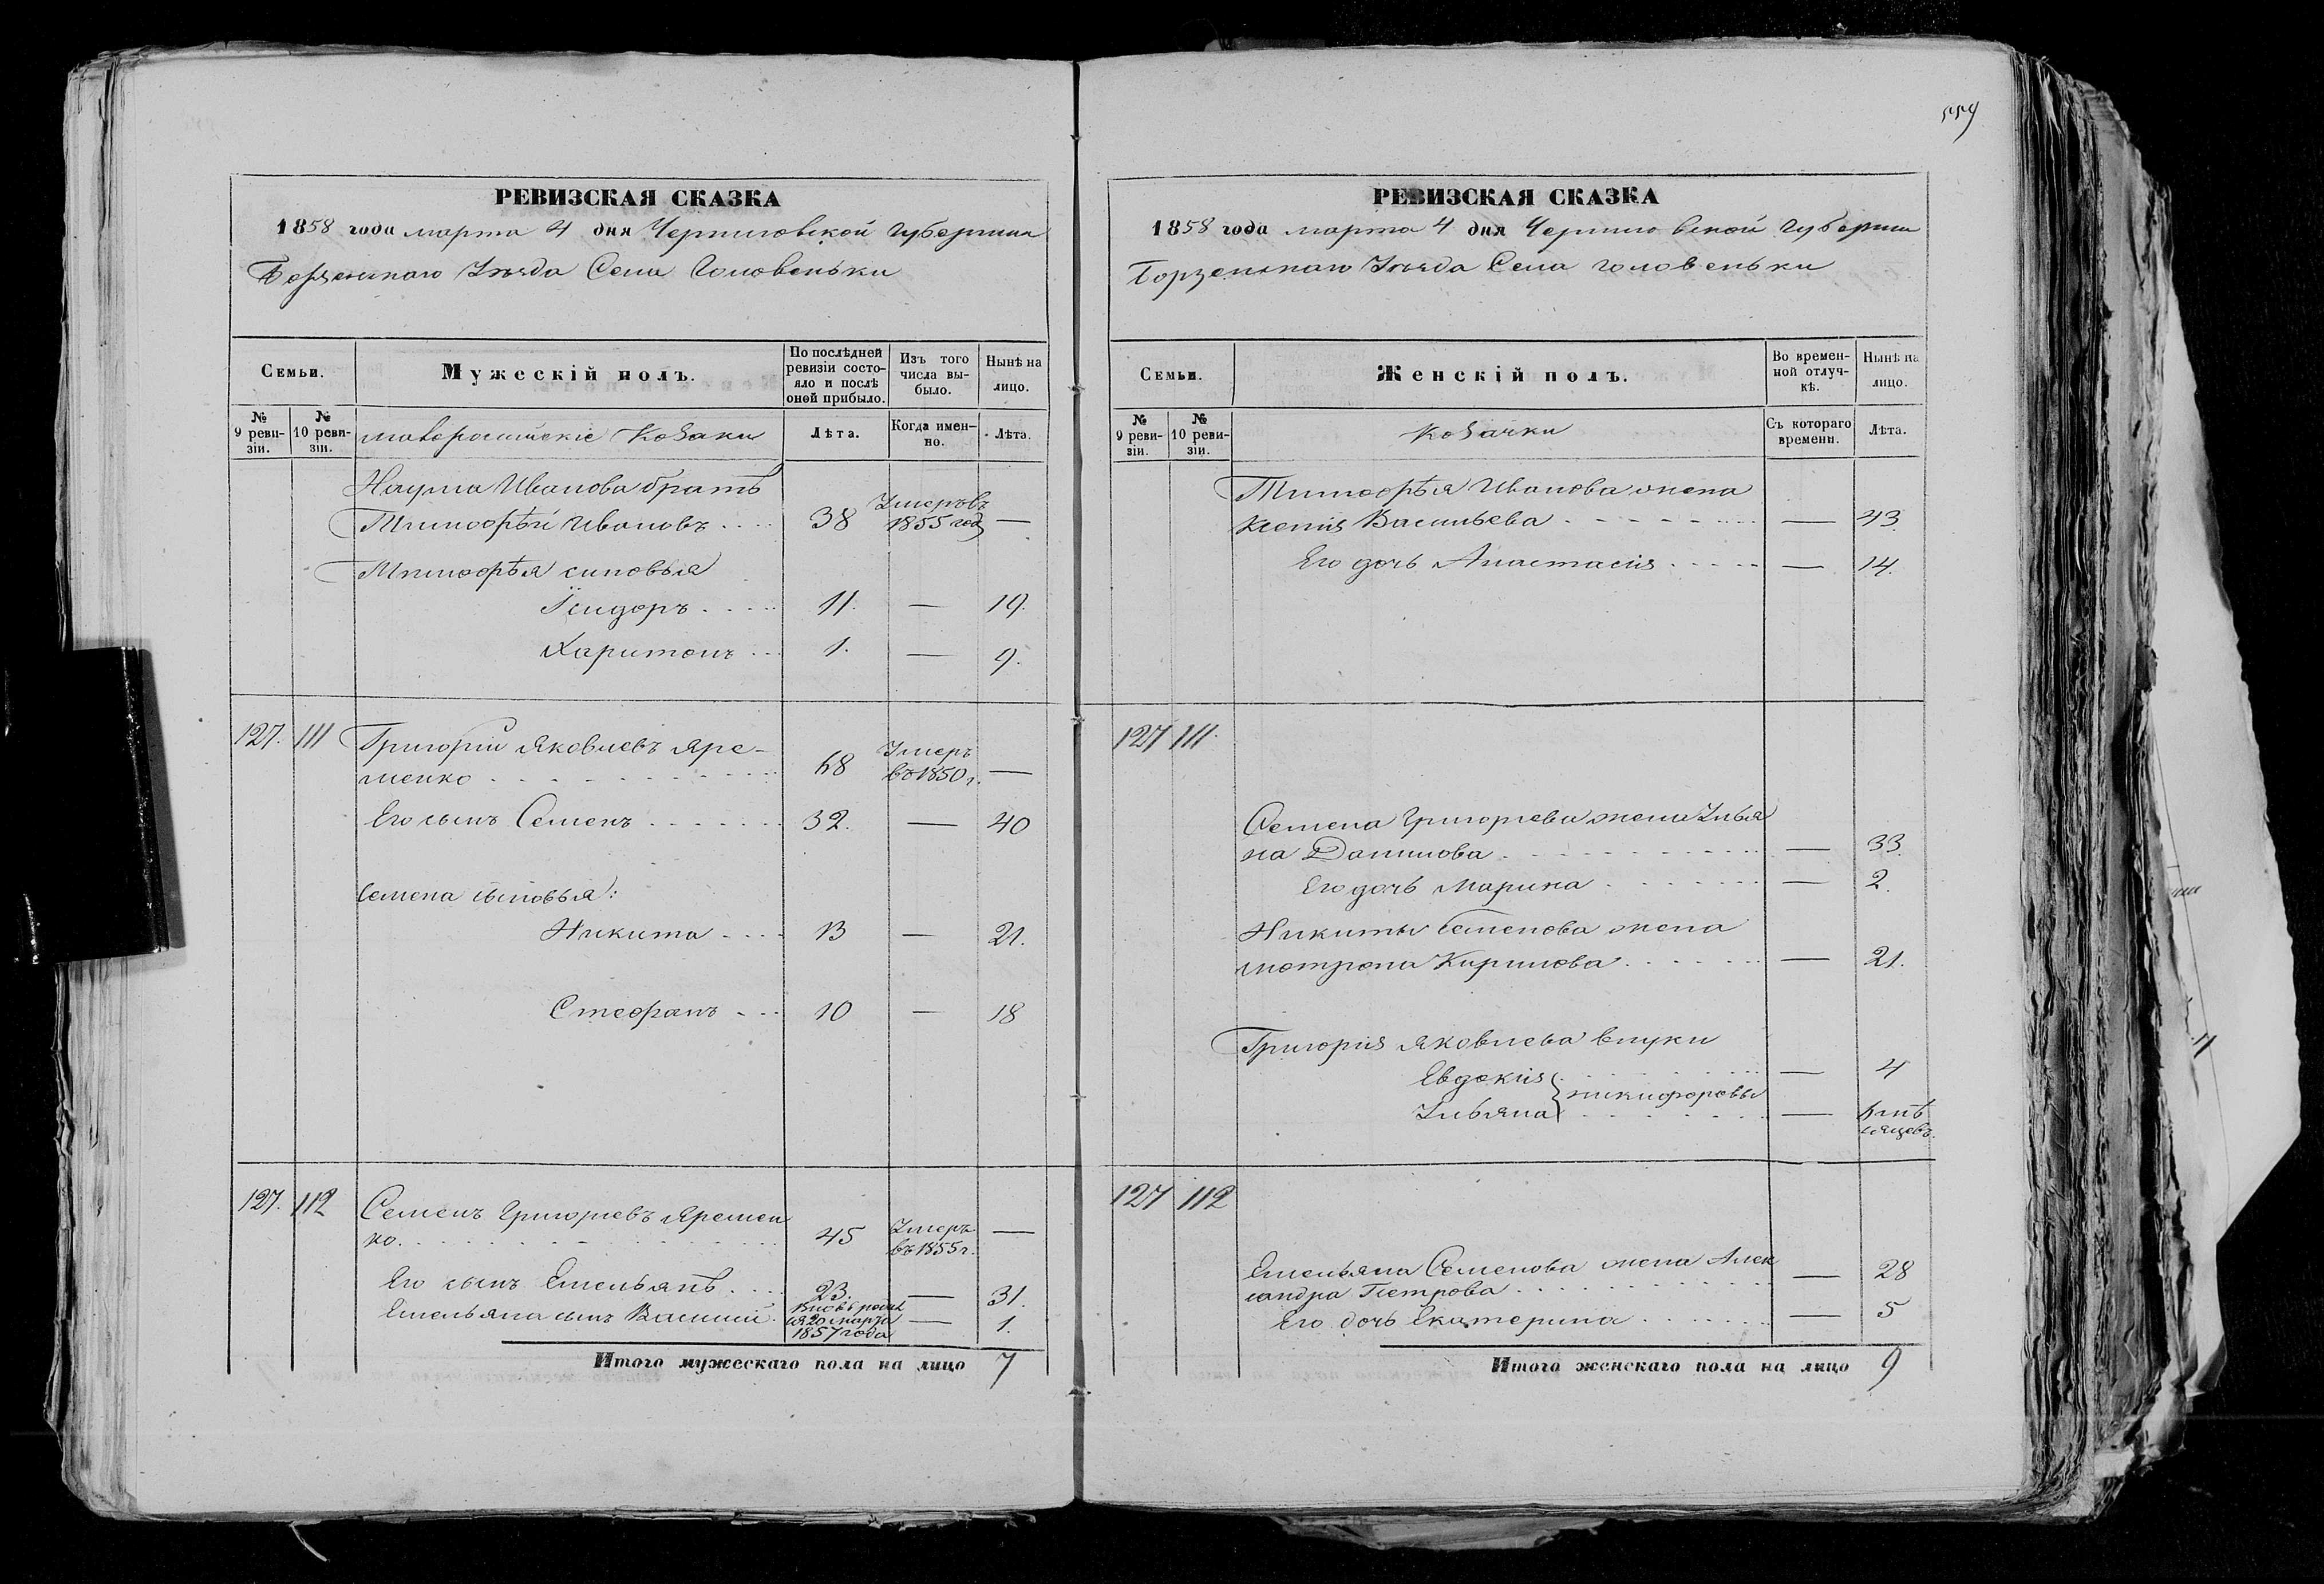 РЕВИЗСКАЯ СКАЗКА
1858 года марта 4 дня Черниговской губернии
Борзенскаго Уѣзда Села Головеньки
Семьи.
Мужескій полъ.
По послѣдней ревизіи состояло и послѣ оной прибыло.
Изъ того числа выбыло.
Нынѣ на лицо.
№ 9 ревизіи.
№ 10 ревизіи.
малороссійскіе Козаки
Лѣта.
Когда именно.
Лѣта.
Наума Иванова братъ
Тимофѣй Ивановъ 38 Умеръ въ 1855 год —
Тимофѣя сыновья
Ісидоръ 11. — 19.
Харитонъ 1. — 9.
127. 111 Григорій Яковлевъ Яре-
менко 68 Умеръ въ 1850 г. —
Его сынъ Семенъ 32. — 40
Семена сыновья:
Никита 13 — 21.
Стефанъ 10 — 18
127. 112 Семенъ Григорьевъ Яремен
ко. 45 Умеръ въ 1855 г. —
Его сынъ Емельянъ 23. — 31.
Емельяна сынъ Василій Вновь родил ся 20 марта 1857 года — 1.
Итого мужескаго пола на лицо 7
559
РЕВИЗСКАЯ СКАЗКА
1858 года марта 4 дня Черниговской губернии
Борзенскаго Уѣзда Села головеньки
Семьи.
Женскій полъ.
Во временной отлучкѣ.
Нынѣ на лицо.
№ 9 ревизіи.
№ 10 ревизіи.
Козачки
Съ котораго времени.
Лѣта.
Тимофѣя Иванова жена
Ксенія Васильева — 43
Его дочь Анастасія — 14.
127 111.
Семена Григорьева жена Улья
на Данилова — 33.
Его дочь Марина — 2.
Никиты Семенова жена
мотрона Кирилова — 21.
Григорія Яковлева внуки
Евдокія — 4
никифоровы
Ульяна — 6 мѣ
сяцевъ.
127 112
Емельяна Семенова жена Алек
сандра Петрова — 28
Его дочь Екатерина — 5
Итого женскаго пола на лицо 9